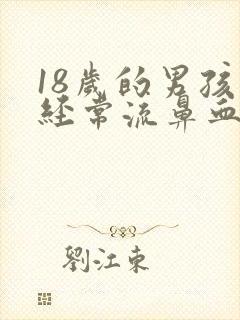 18歲的男孩
經常流鼻血
劉江東